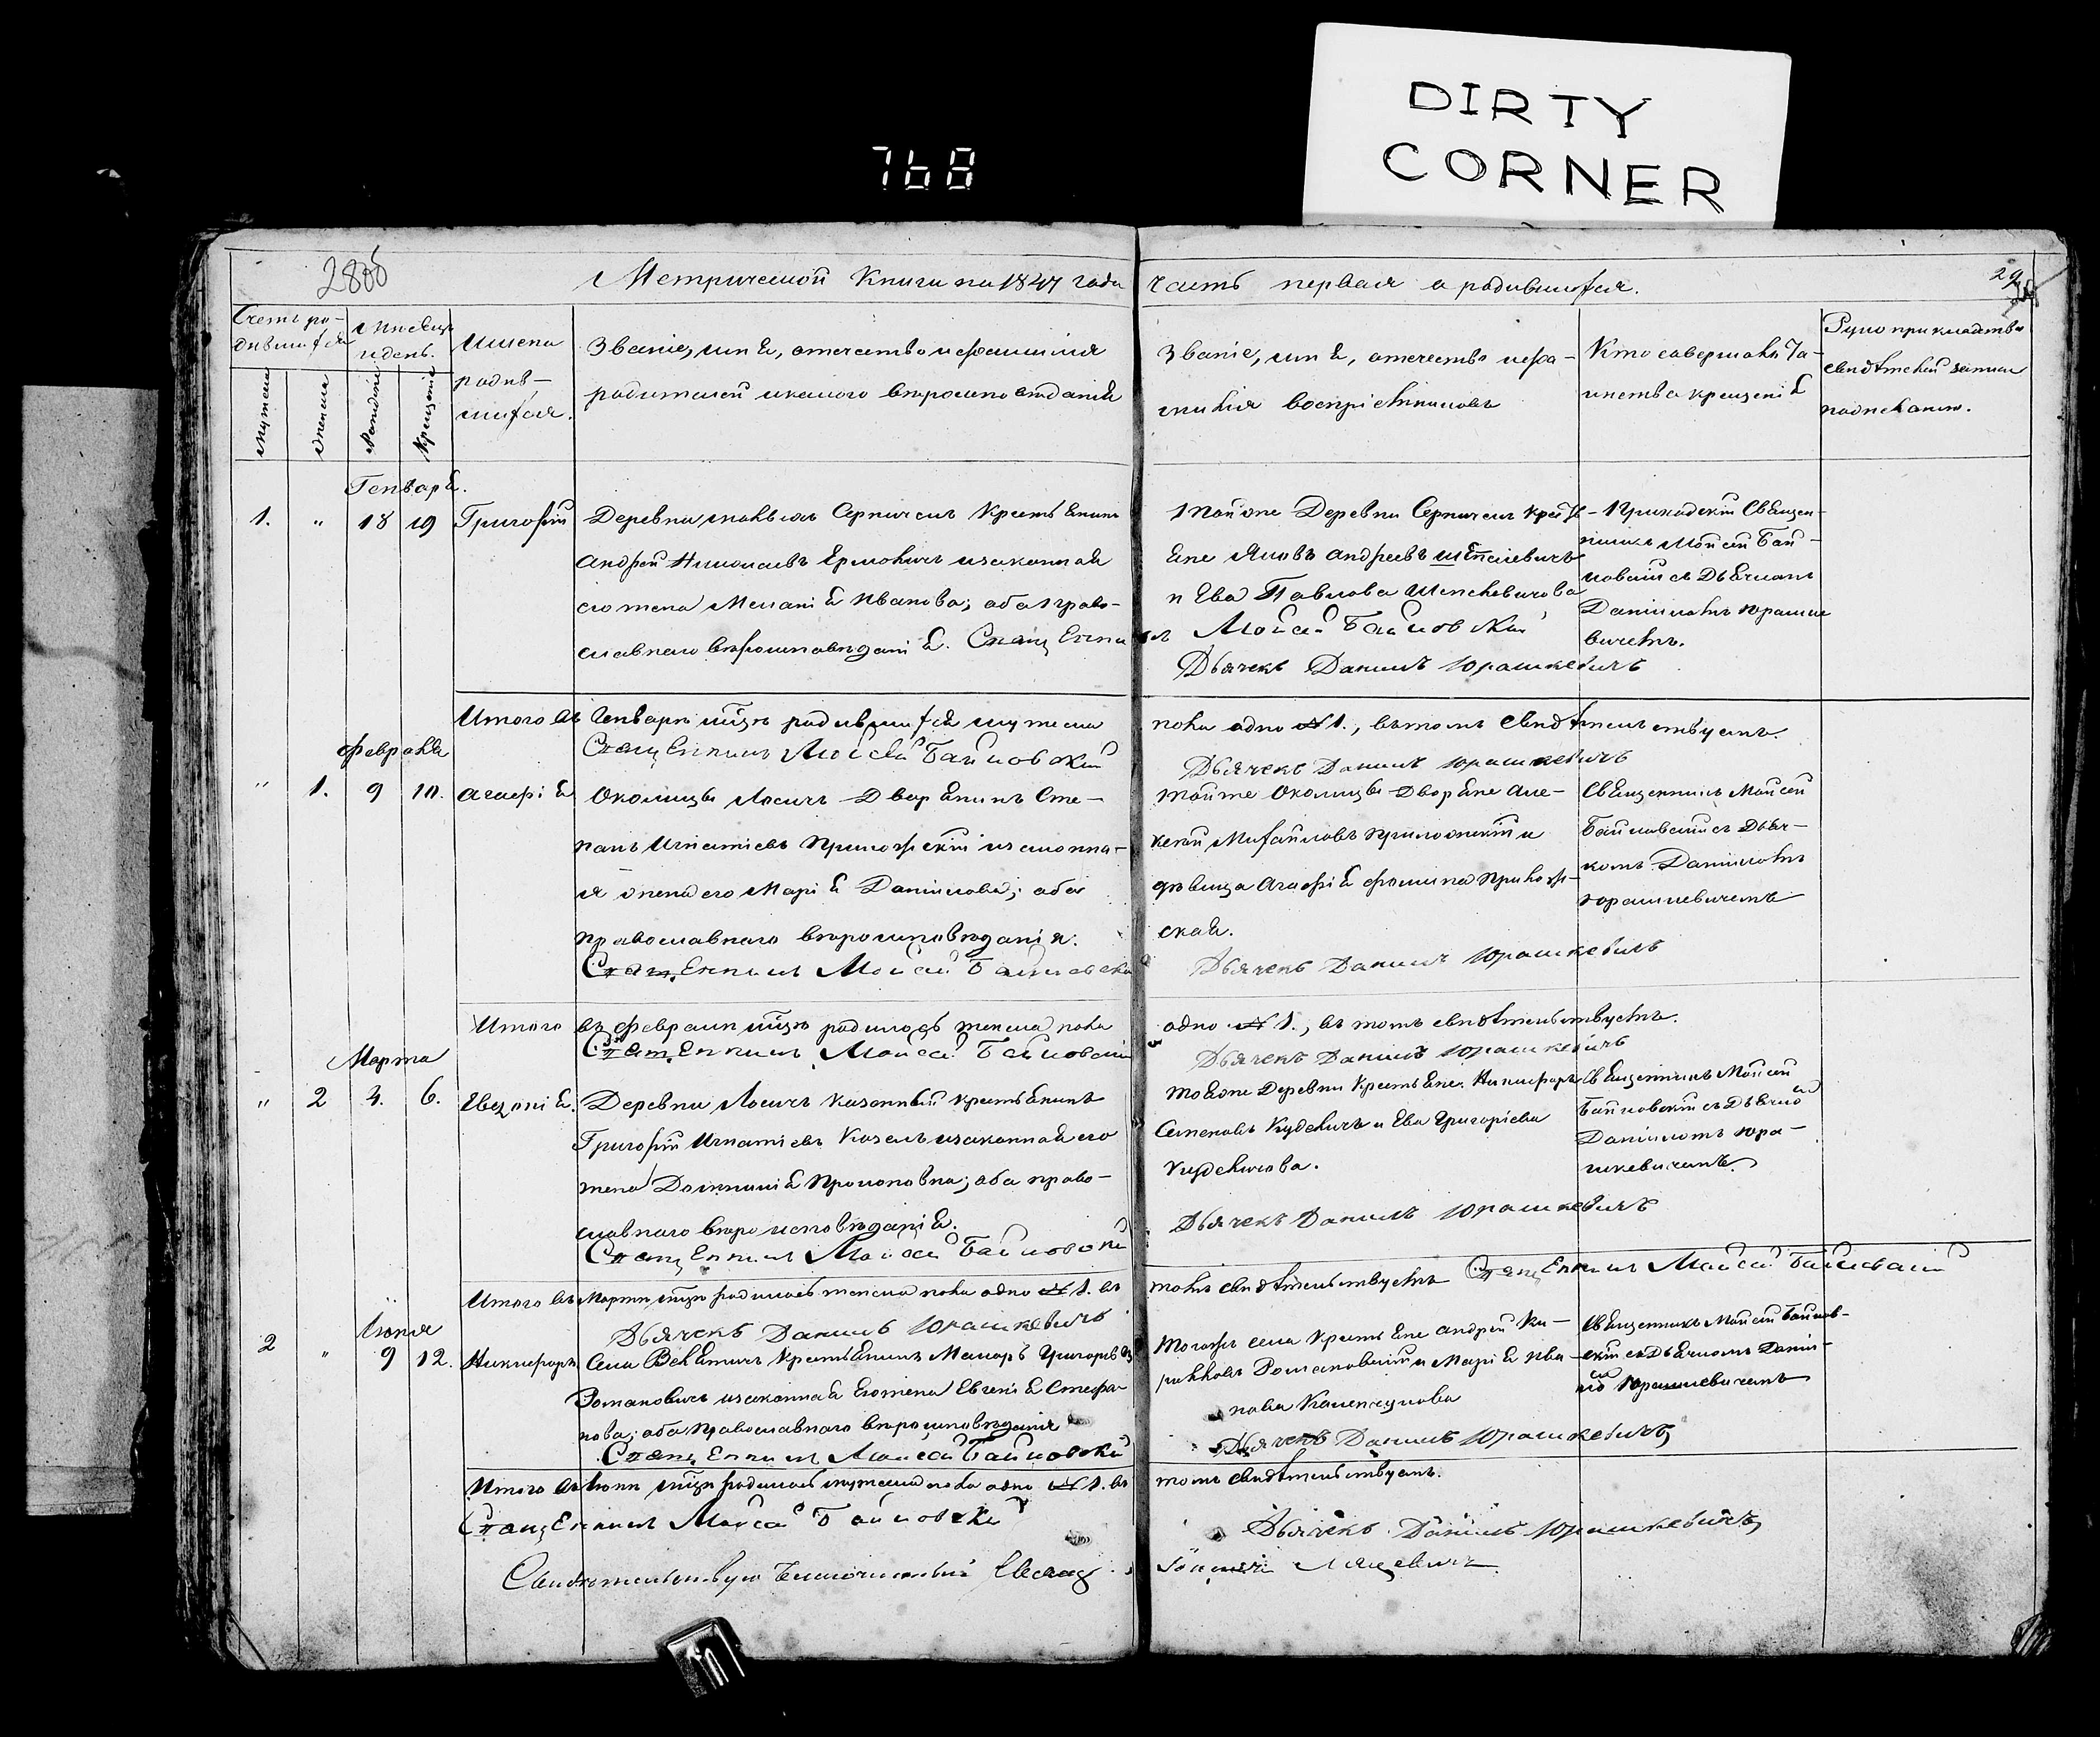 DIRTY
CORNER
768
288об
Метрической Книги на 1847 года часть первая о родившихся.
29
Счетъ ро-
дившихся
Мѣсяцъ
и день.
Имена
родив-
шихся.
Званіе, имя, отчество и фамилія
родителей и какого вѣроисповѣданія
Званіе, имя, отчество и фа-
милія воспріемниковъ
Кто совершалъ Та-
инство крещенія
Рукоприкладство
свидѣтелей записи
по желанію.
мужеска
женска
Рожденія
Крещенія
Генваря.
1. " 18 19 Григорій
Деревни Серничекъ Крестьянинъ
Андрей Николаевъ Ермоловичъ и законная
его жена Меланія Иванова; оба право-
славнаго вѣроисповѣданія. Священникъ Мойсей Байковскій
Той же Деревни Серничекъ крестья-
не Яковъ Андреевъ
и Ева Павлова
Дьячекъ Данилъ Юрашкевичъ
Приходскій Священ-
никъ Мойсей Бай-
ковскій съ Дьячкомъ
Даніиломъ Юрашке
вичемъ.
Итого въ Генварѣ мцѣ родившихся мужеска
пола одно № 1., въ томъ свидѣтельствуемъ.
Священникъ Мойсей Байковскій
Дьячекъ Данилъ Юрашкевичъ
Февраля
" 1. 9 10. Агафія
Околицы Лосичъ Дворянинъ Сте-
панъ Игнатіевъ и законна-
я жена его Марія Даніилова; оба
православнаго вѣроисповѣданія.
Священникъ Мойсей Байковскій
Той же Околицы Дворяне Але-
ксей Михайловъ и
дѣвица Агафія Фомина
ская.
Дьячекъ Данилъ Юрашкевичъ
Священникъ Мойсей
Байковскій съ Дьяч-
комъ Даніиломъ
Юрашкевичемъ
Итого въ Февралѣ мцѣ родилось женска пола
одно № 1., въ томъ свидѣтельствуемъ.
Священникъ Мойсей Байковскій
Дьячекъ Данилъ Юрашкевичъ
Марта
" 2 4. 6. Евдокія.
Деревни Лосичъ казенный крестьянинъ
Григорій Игнатіевъ Козелъ и законная его
жена Домникія Прокоповна; оба право-
славнаго вѣроисповѣданія.
Священникъ Мойсей Байковскій
Тоя же Деревни Крестьяне Никифоръ
Семеновъ Кудевичъ и Ева Григоріева
Кудевичова.
Дьячекъ Данилъ Юрашкевичъ
Священникъ Мойсей
Байковскій съ Дьячко
Даніиломъ Юра-
шкевичемъ.
Итого въ Мартѣ мцѣ родилось женска пола одно № 1. въ
томъ свидѣтельствуемъ Священникъ Мойсей Байковскій
Дьячекъ Данилъ Юрашкевичъ
Іюня
2 " 9 12. Никифоръ
Села Крестьянинъ Макаръ Григорьевъ
Романовичъ и законная его жена Евгенія Стефа-
нова; оба православнаго вѣроисповѣданія
Священникъ Мойсей Байковскій
Тогожъ села Крестьяне Андрей Ки-
рилловъ Романовскій и Марія Ива-
нова
Дьячекъ Данилъ Юрашкевичъ
Священникъ Мойсей Байков-
скій съ Дьячкомъ Даніи-
ло Юрашкевичемъ
Итого въ Іюнѣ мцѣ родилось мужеска пола одно № 1. въ
томъ свидѣтельствуемъ.
Священникъ Мойсей Байковскій
Дьячекъ Данилъ Юрашкевичъ
Свидѣтельствую Благочинный